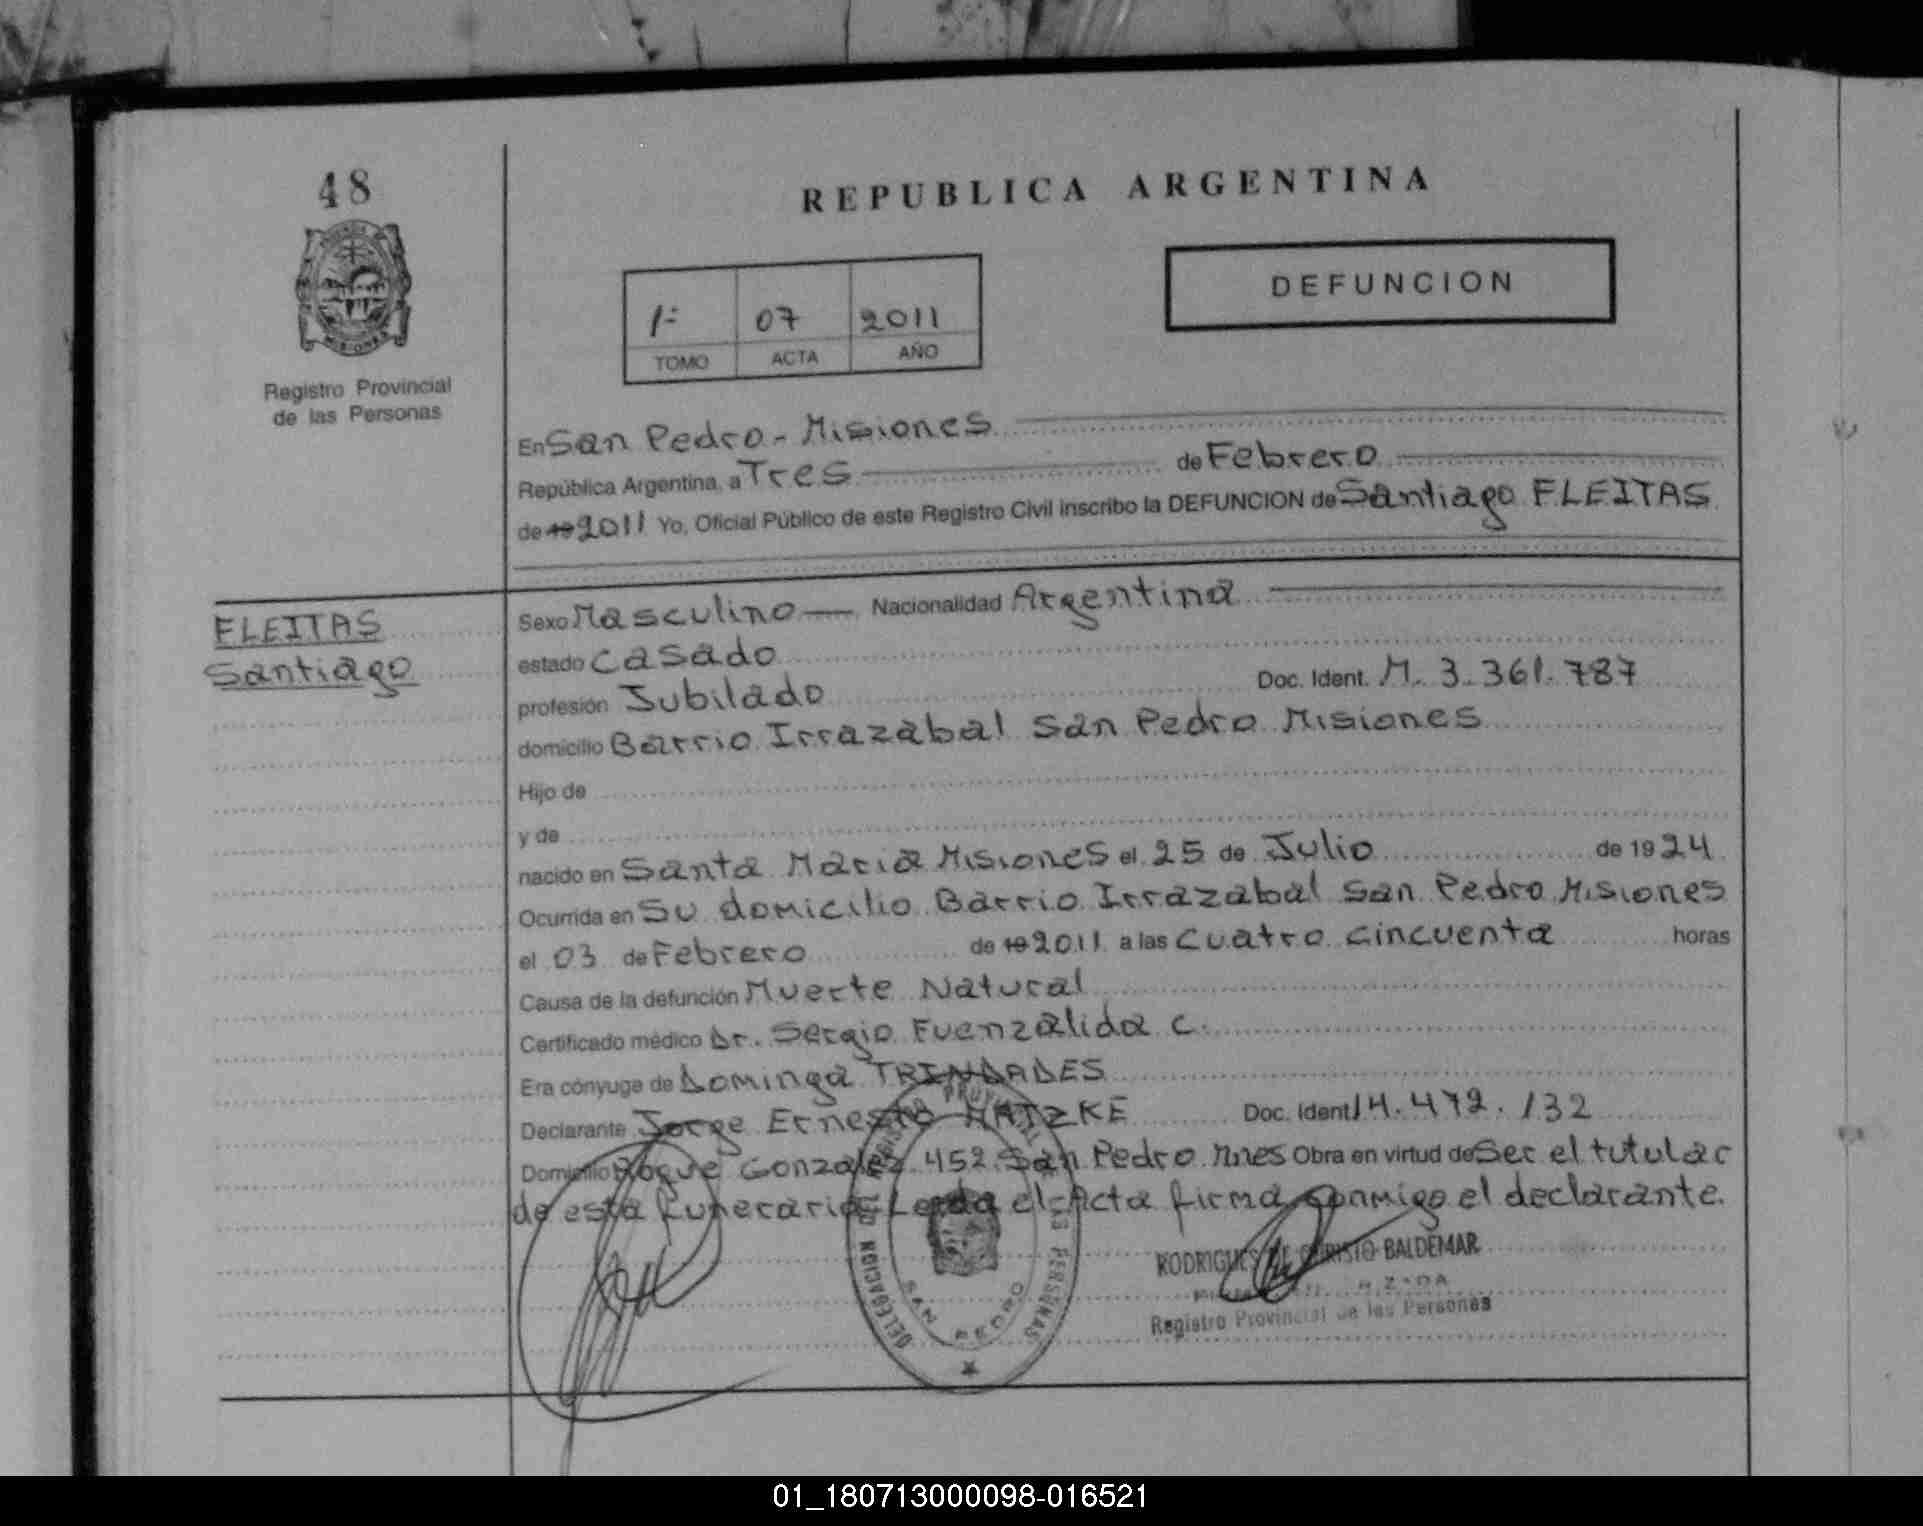 48
REPUBLICA ARGENTINA
MISIONES
Registro Provincial
de las Personas
1º 07 2011
TOMO ACTA AÑO
DEFUNCION
En San Pedro - Misiones
República Argentina, a Tres de Febrero
de 19 2011 Yo, Oficial Público de este Registro Civil inscribo la DEFUNCION de Santiago FLEITAS
FLEITAS
Santiago
Sexo Masculino Nacionalidad Argentina
estado Casado
profesión Jubilado Doc. Ident. M. 3.361.787
domicilio Barrio Irrazabal San Pedro Misiones
Hijo de
y de
nacido en Santa Maria Misiones el 25 de Julio de 1924
Ocurrida en Su domicilio Barrio Irrazabal San Pedro Misiones
el 03 de Febrero de 19 2011 a las Cuatro cincuenta horas
Causa de la defunción Muerte Natural
Certificado médico Dr. Sergio Fuenzalida C.
Era cónyuge de Dominga TRINDADES
Declarante Jorge Ernesto HATZKE Doc. Ident 14.472.132
Domicilio Roque Gonzalez 452 San Pedro Mnes Obra en virtud de Ser el tutular
de esta funeraria Leida el Acta firma conmigo el declarante.
DELEGACION DEL REGISTRO PROVINCIAL DE LAS PERSONAS
SAN PEDRO
RODRIGUES DE CHRISTO BALDEMAR
Registro Provincial de las Personas
01_180713000098-016521